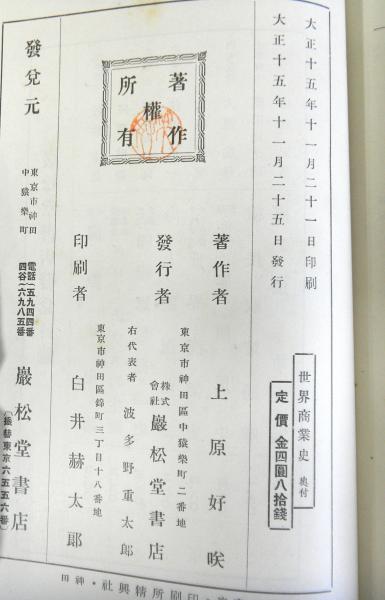 大正十五年十一月二十一日印刷
大正十五年十一月二十五日發行
世界商業史 奥付
定價 金四圓八拾錢
著作權所有
著作者 上原好咲
東京市神田區中猿樂町二番地
發行者 株式會社 巖松堂書店
右代表者 波多野重太郎
東京市神田區錦町三丁目十八番地
印刷者 白井赫太郎
發兌元 東京市神田中猿樂町 電話四谷(五九四四番 六九八五番) 巖松堂書店
(振替東京六五五六番)
印刷所精興社・神田